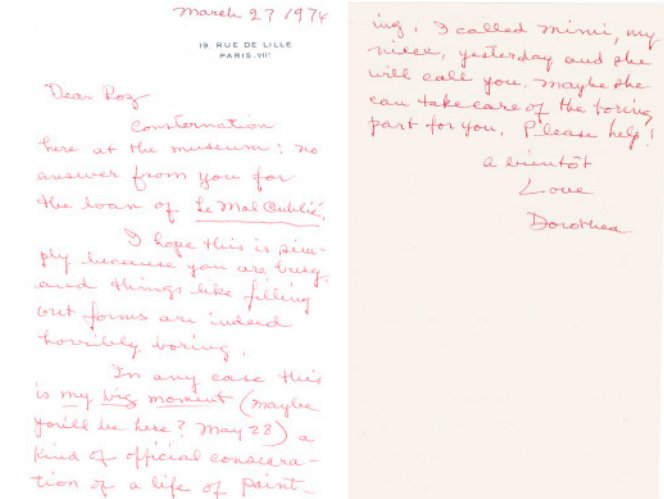 March 27 1974
19, RUE DE LILLE
PARIS.VIIe
Dear Roz
Consternation
here at the museum: no
answer from you for
the loan of Le Mal Oublié.
I hope this is sim-
ply because you are busy,
and things like filling
out forms are indeed
horribly boring.
In any case this
is my big moment (maybe
you'll be here? May 28) a
kind of official consecra-
tion of a life of paint-
ing. I called Mimi, my
niece, yesterday and she
will call you. Maybe she
can take care of the boring
part for you. Please help!
a bientôt
Love
Dorothea